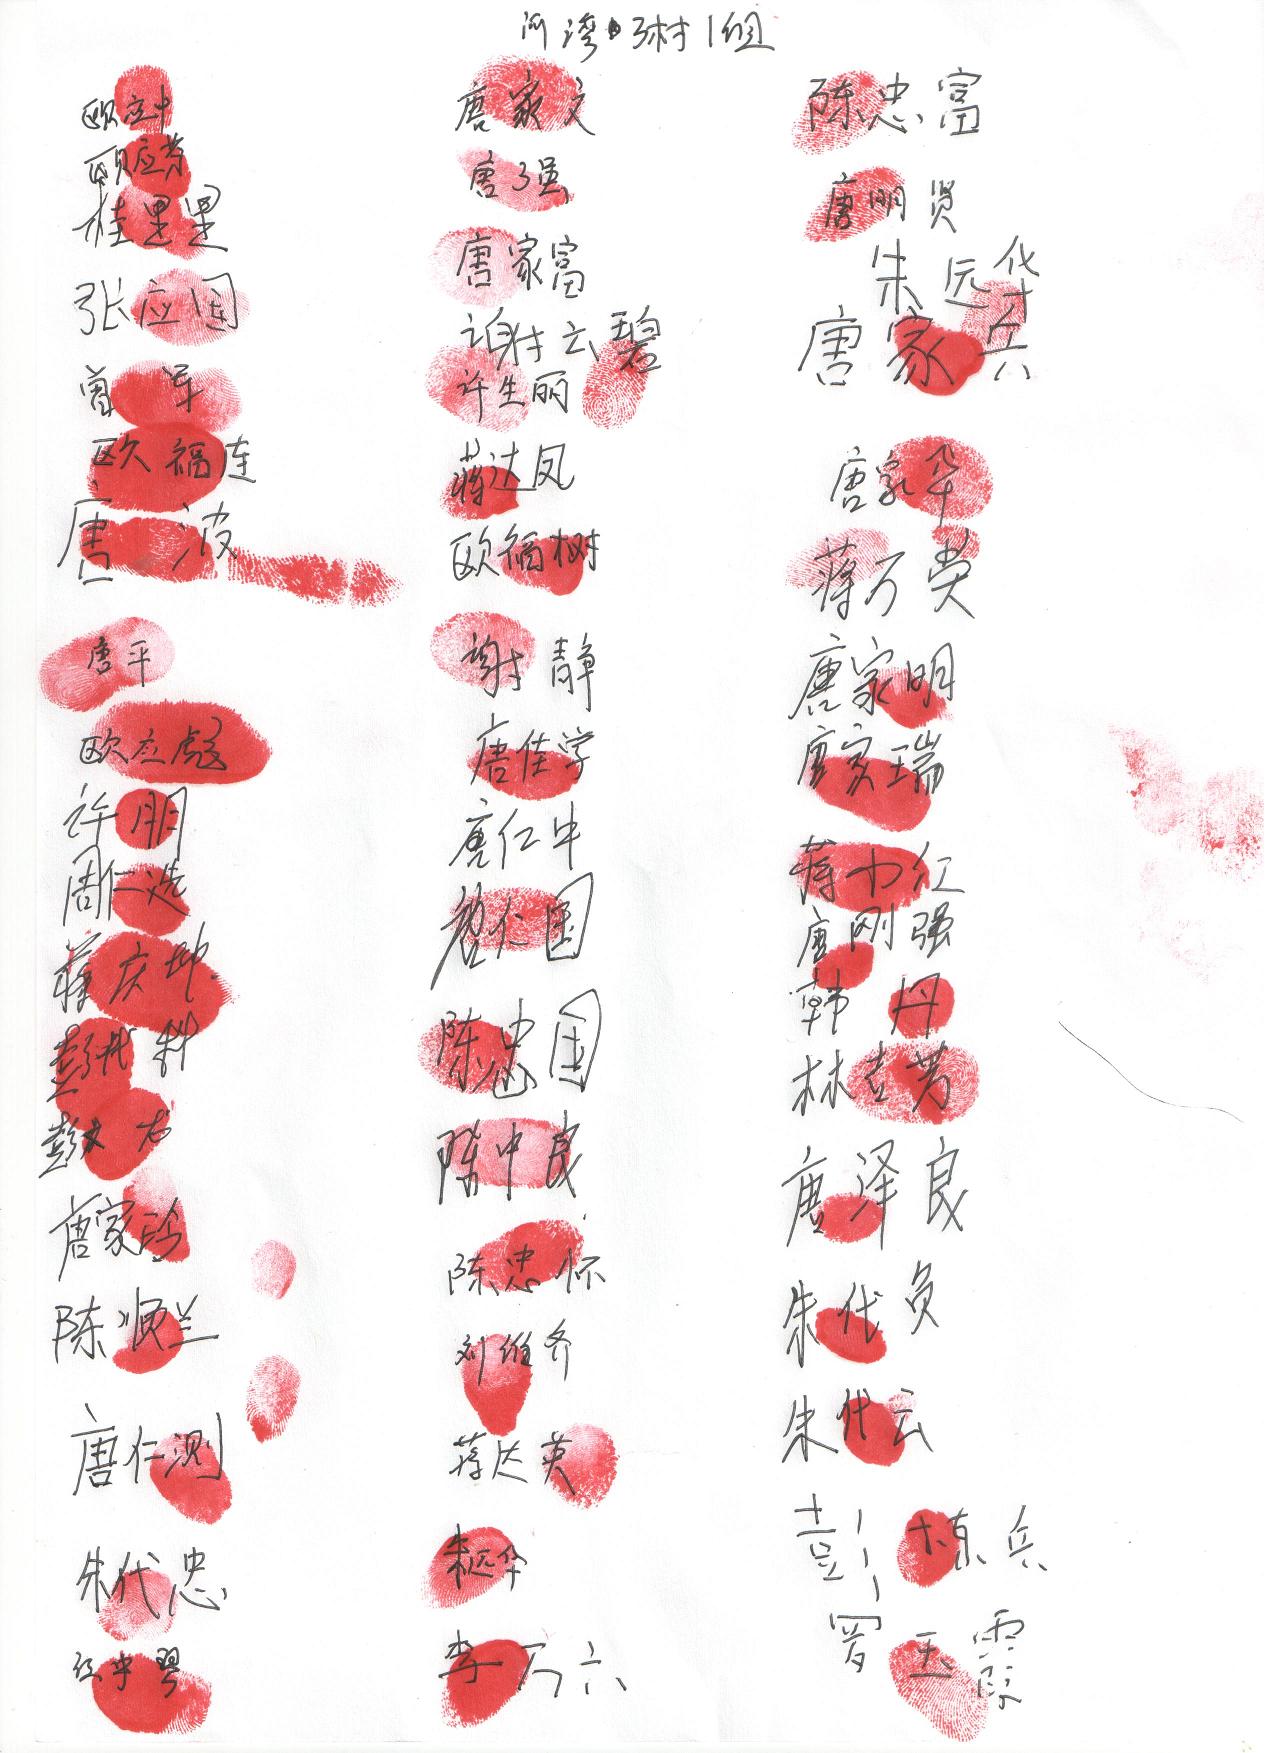 河湾村1组
欧应中
欧应芬
桂里星
张应国
曾军
欧福连
唐波
唐平
欧应彪
许朋
周仁选
蒋庆坤
彭
彭文龙
唐家珍
陈顺兰
唐仁测
朱代忠
唐家文
唐强
唐家富
谢云碧
许生丽
蒋达凤
欧福树
谢静
唐佳学
唐仁中
唐仁国
陈忠国
陈中良
陈忠怀
刘维齐
蒋达英
朱远华
李万六
陈忠富
唐明贤
朱远华
唐家兵
唐家华
蒋万荣
唐家明
唐家瑞
蒋小红
唐刚强
韩丹
林吉芳
唐泽良
朱代负
朱代云
彭栋兵
罗玉霞